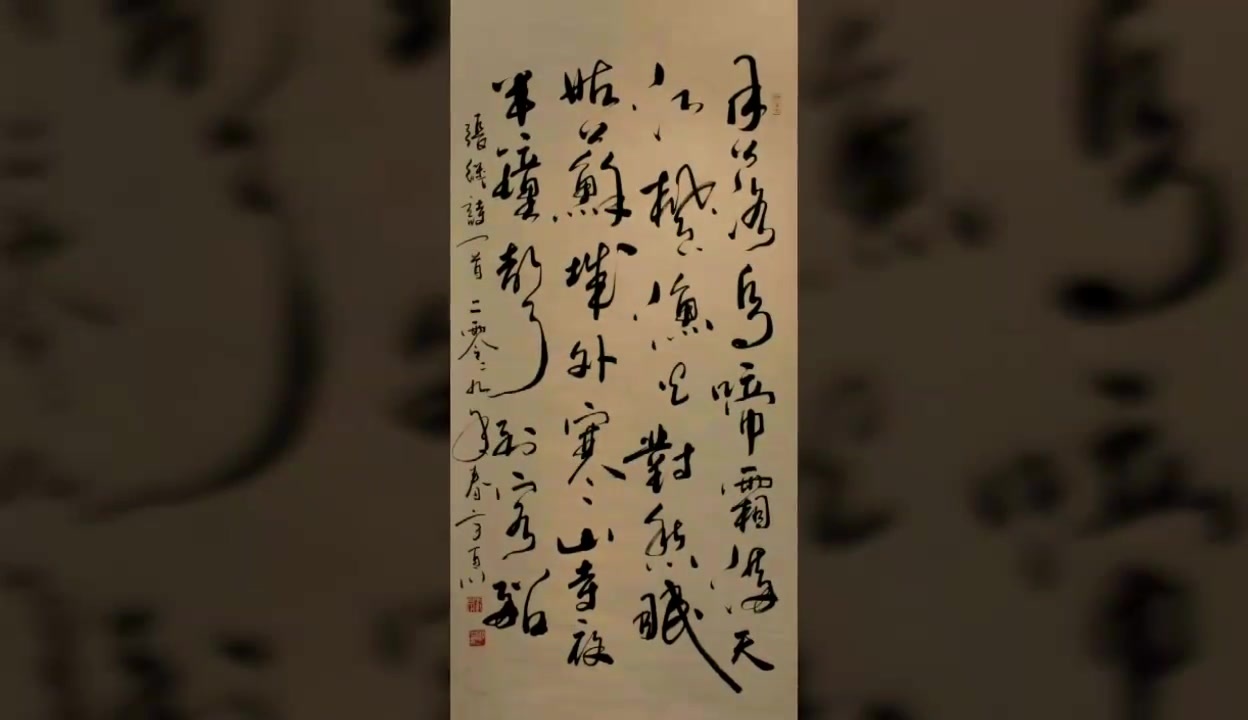 月落烏啼霜滿天
江楓漁火對愁眠
姑蘇城外寒山寺夜
半鐘聲到客船
張繼詩一首 二零一九年春